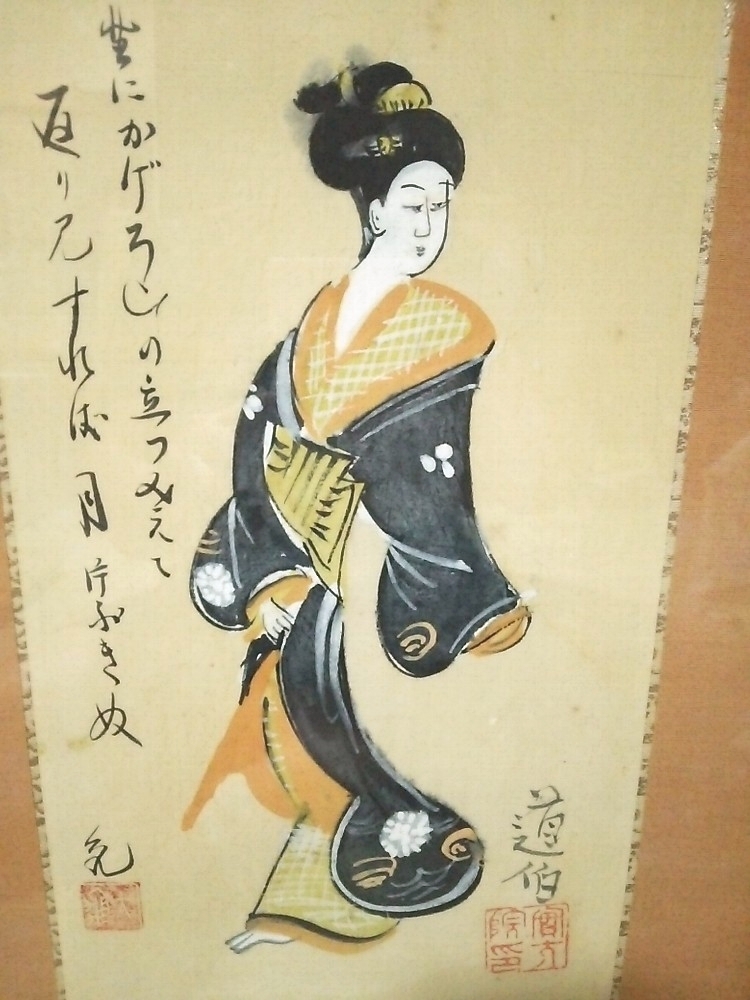 埜にかげろひの立つみえて
返り見すれば月片ぶきぬ
道伯